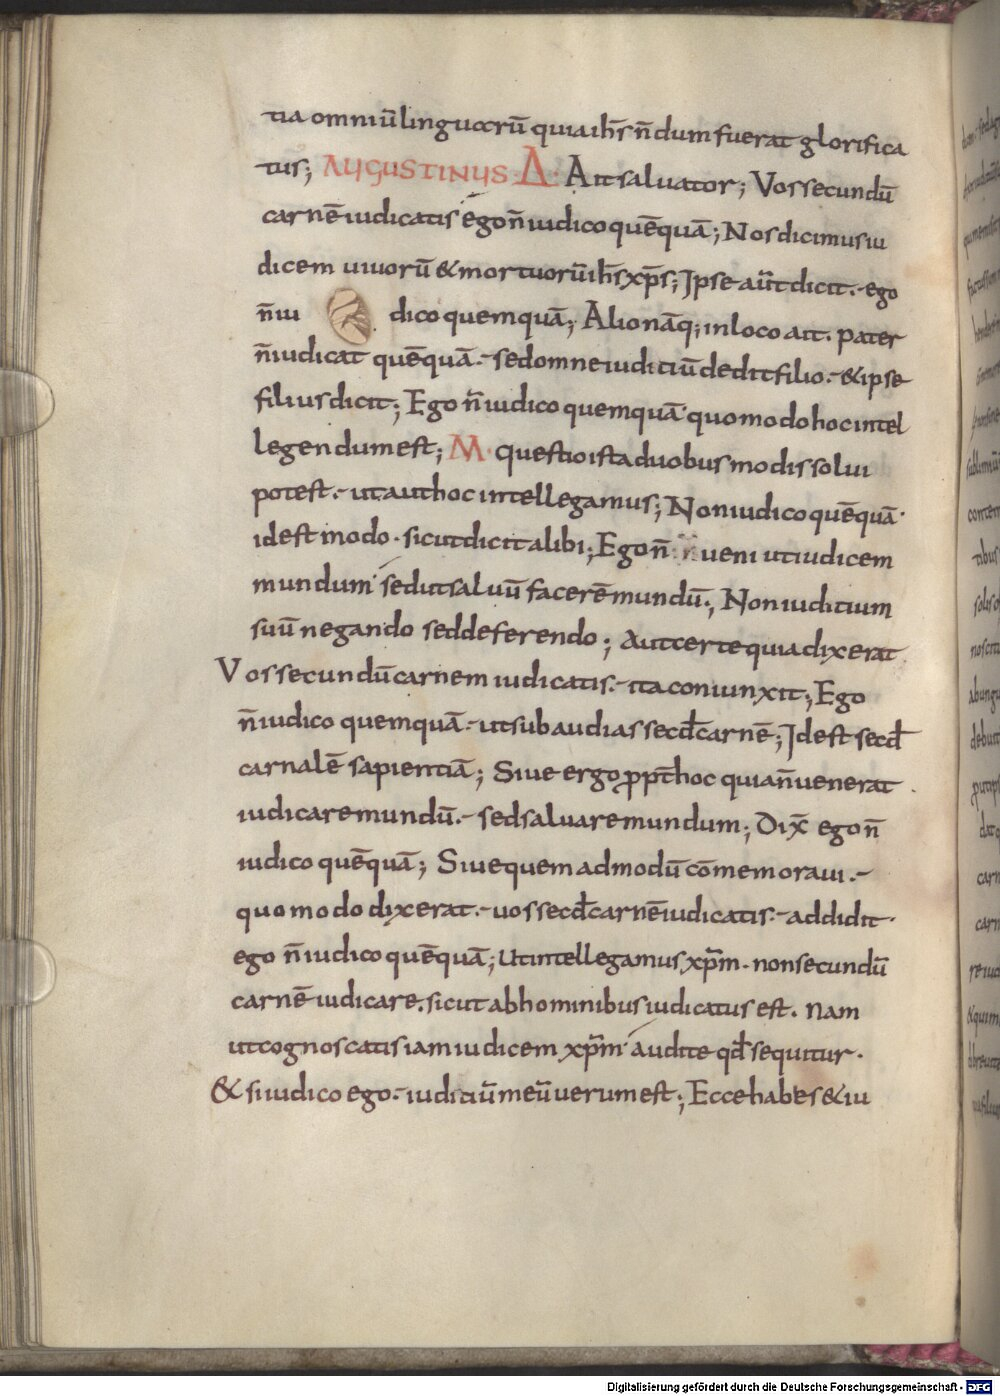 tia omniū linguarū quia ih̄s n̄dum fuerat glorifica
tus; AUGUSTINUS Δ· Ait saluator; Vos secundū
carnē iudicatis ego n̄ iudico quēquā; Nos dicimus iu
dicem uiuorū & mortuorū ih̄s xp̄s; Ipse aūt dicit·- ego
n̄ iu dico quemquā; Alio nāq; in loco ait· pater
n̄ iudicat quēquā·- sed omne iuditiū dedit filio·- & ipse
filius dicit; Ego n̄ iudico quemquā quomodo hoc intel
legendum est; M· questio ista duobus modis solui
potest·- ut aut hoc intellegamus; Non iudico quēquā·
id est modo· sicut dicit alibi; Ego n̄ ueni ut iudicem
mundum sed ut saluū facerē mundū; Non iuditium
suū negando sed deferendo; aut certe quia dixerat
Vos secundū carnem iudicatis·- ita coniunxit; Ego
n̄ iudico quemquā·- ut subaudias secd̄ carnē; Id est secd̄
carnalē sapientiā; Siue ergo ppt̄ hoc quia n̄ uenerat
iudicare mundū·- sed saluare mundum; Dix̄ ego n̄
iudico quēquā; Siue quemadmodū cōmemoraui·-
quomodo dixerat·- uos secd̄ carnē iudicatis·- addidit·
ego n̄ iudico quēquā; Ut intellegamus xp̄m· non secundū
carnē iudicare· sicut ab hominibus iudicatus est· Nam
ut cognoscatis iam iudicem xp̄m audite qd̄ sequitur·
& si iudico ego·- iuditiū meū uerum est; Ecce habes & iu
Digitalisierung gefördert durch die Deutsche Forschungsgemeinschaft - DFG